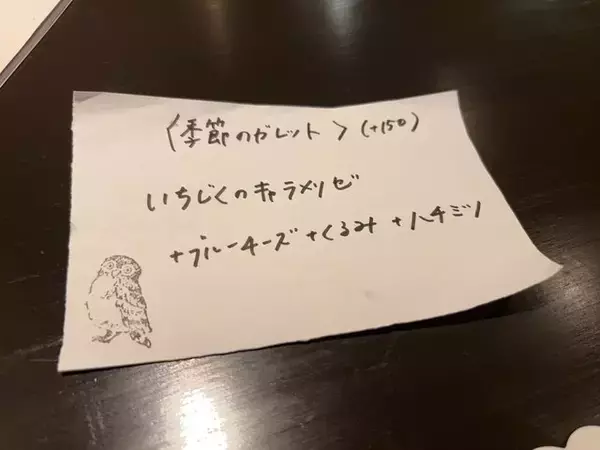 〈季節のガレット〉(+150)
いちじくのキャラメリゼ
+ブルーチーズ+くるみ+ハチミツ